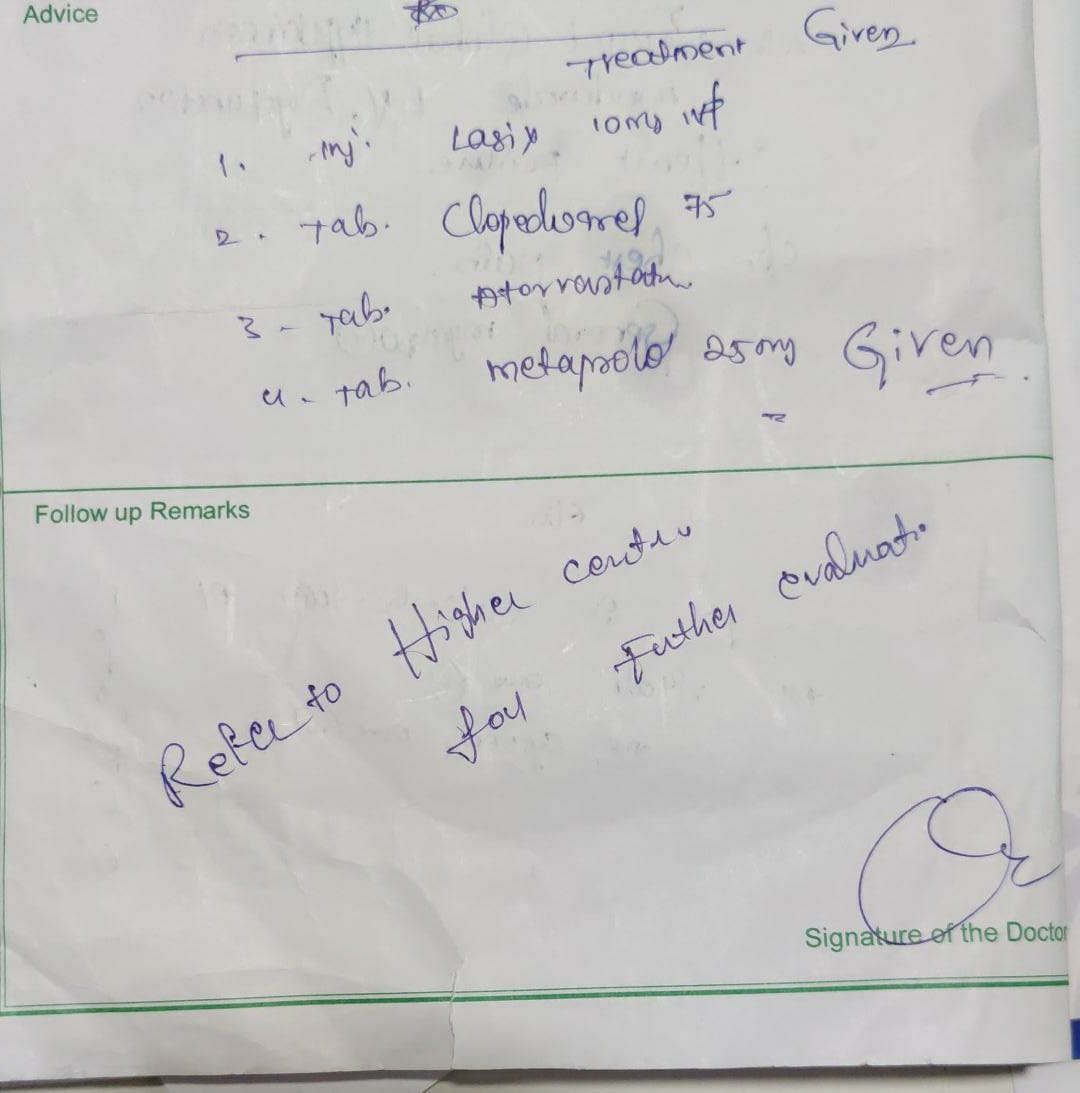 Advice
Treatment Given
1. Inj. Lasix 10mg
2. Tab. Clopedogrel 75
3 - Tab. Atorvastatin
4. Tab. metaprolol 25mg Given
Follow up Remarks
Refer to Higher centre
for Futher evaluation
Signature of the Doctor